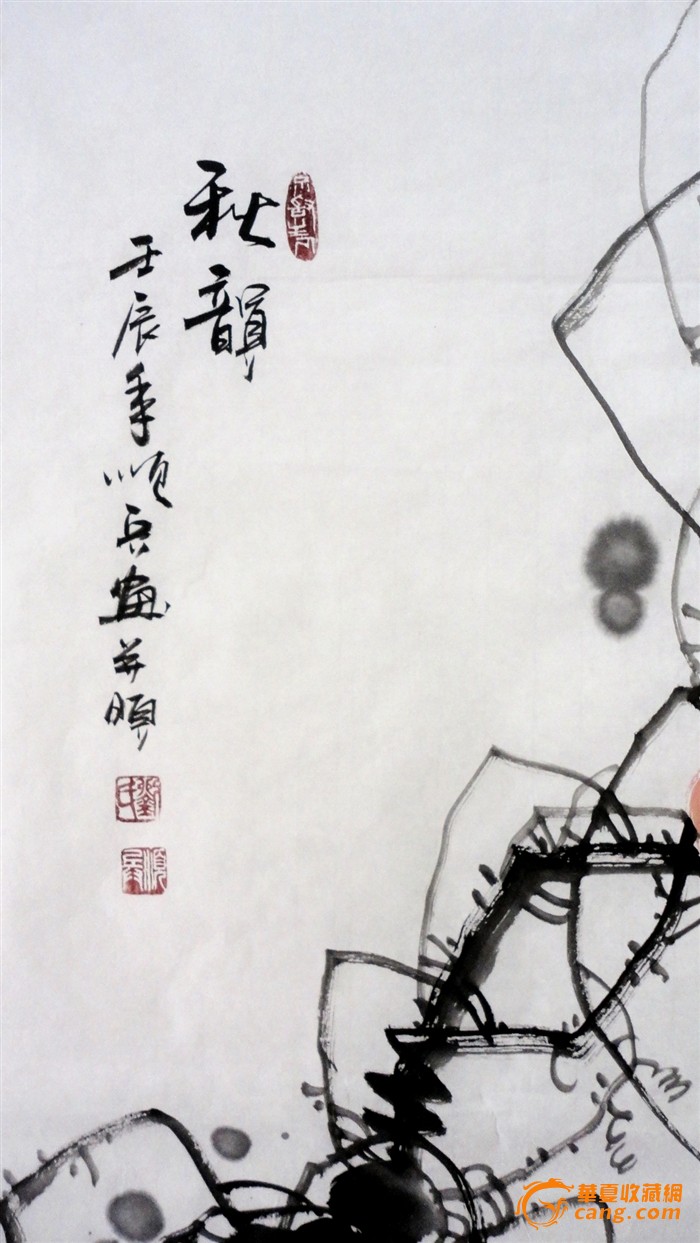 秋韻
壬辰年順兵畫并題
華夏收藏網
cang.com